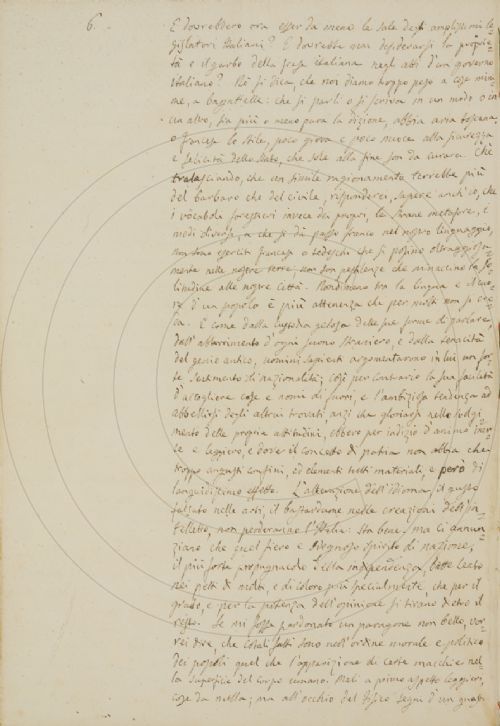 6.
E dovrebbero ora esser da meno le sale degli amplissimi le=
gislatori Italiani? E dovrebbe mai desiderarsi la proprie=
tà e il garbo della forma italiana negli atti d'un governo
Italiano? Nè si dica, che noi diamo troppo peso a cose mini=
me, a bagattelle: che si parli o si scriva in un modo o in
un altro, sia più o meno pura la dizione, abbia aria toscana,
o francese lo stile, poco giova e poco nuoce alla sicurezza
e felicità dello Stato, che sole alla fine son da curare. Chè
tralasciando, che un simile ragionamento terrebbe più
del barbaro che del civile, risponderei, sapere anch'io, che
i vocaboli forestieri invece dei proprj, le strane metafore, i
modi diversi, a che si dà passo franco nel nostro linguaggio,
non sono eserciti francesi o tedeschi che si possino oltraggiosa=
mente nelle nostre terre; non son pestilenze che minaccino la so=
litudine alle nostre Città. Nondimeno tra la lingua e il cuo=
re d'un popolo è più attenenza che per molti non si cre=
da. E come dalla custodia gelosa delle sue forme di parlare,
dall'abborrimento d'ogni suono straniero, e dalla tenacità
del genio antico, uomini sapienti argomentarono in lui un for=
te sentimento di nazionalità; così per contrario la sua facilità
d'accogliere cose e nomi di fuori, e l'ambiziosa tendenza ad
abbellirsi degli altrui trovati, anzi che gloriarsi nello svolgi
mento delle proprie attitudini, ebbero per indizio d'animo iner=
te e leggiero, e dove il concetto di patria non abbia che
troppo angusti confini, ed elementi tutti materiali, e però di
languidissimo effetto. L'alterazione dell'idioma, il gusto
falsato nelle arti, il bastardume nelle creazioni dell'in=
telletto, non perderanno l'Italia: sta bene; ma ci annun=
ziano che quel fiero e disdegnoso spirito di nazione,
il più forte propugnacolo della indipendenza, batte lento
nei petti di molti, e di coloro più specialmente, che per il
grado, e per la potenza dell'opinione si tirano dietro il
resto. Se mi fosse perdonato un paragone non bello, vor=
rei dire, che cotali fatti sono nell'ordine morale e politico
dei popoli quel che l'apparizione di certe macchie nel=
la superficie del corpo umano. Mali a primo aspetto leggieri,
cose da nulla; ma all'occhio del fisico segni d'un guasto